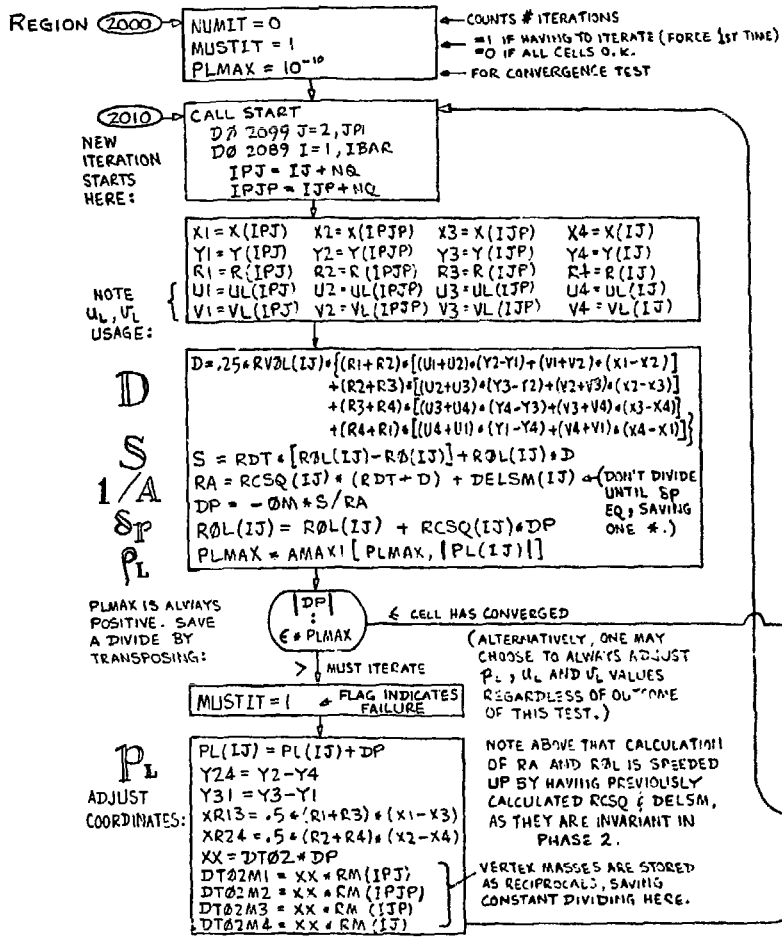 REGION 2000
NUMIT = 0
MUSTIT = 1
PLMAX = 10^-10
COUNTS # ITERATIONS
=1 IF HAVING TO ITERATE (FORCE 1ST TIME)
=0 IF ALL CELLS O.K.
FOR CONVERGENCE TEST
2010
NEW
ITERATION
STARTS
HERE:
CALL START
DØ 2099 J=2,JP1
DØ 2089 I=1,IBAR
IPJ = IJ+NQ
IPJP = IJP+NQ
NOTE
UL, VL
USAGE:
X1 = X(IPJ) X2 = X(IPJP) X3 = X(IJP) X4 = X(IJ)
Y1 = Y(IPJ) Y2 = Y(IPJP) Y3 = Y(IJP) Y4 = Y(IJ)
R1 = R(IPJ) R2 = R(IPJP) R3 = R(IJP) R4 = R(IJ)
U1 = UL(IPJ) U2 = UL(IPJP) U3 = UL(IJP) U4 = UL(IJ)
V1 = VL(IPJ) V2 = VL(IPJP) V3 = VL(IJP) V4 = VL(IJ)
D
S
1/A
δp
ρL
D=.25*RVØL(IJ)*{(R1+R2)*[(U1+U2)*(Y2-Y1)+(V1+V2)*(X1-X2)]
+(R2+R3)*[(U2+U3)*(Y3-Y2)+(V2+V3)*(X2-X3)]
+(R3+R4)*[(U3+U4)*(Y4-Y3)+(V3+V4)*(X3-X4)]
+(R4+R1)*[(U4+U1)*(Y1-Y4)+(V4+V1)*(X4-X1)]}
S = RDT*[RØL(IJ)-RØ(IJ)]+RØL(IJ)*D
RA = RCSQ(IJ)*(RDT+D) + DELSM(IJ)
(DON'T DIVIDE
UNTIL δp
EQ, SAVING
ONE *.)
DP = -ØM*S/RA
RØL(IJ) = RØL(IJ) + RCSQ(IJ)*DP
PLMAX = AMAX1[PLMAX, |PL(IJ)|]
PLMAX IS ALWAYS
POSITIVE. SAVE
A DIVIDE BY
TRANSPOSING:
|DP|
:
ϵ*PLMAX
≤ CELL HAS CONVERGED
> MUST ITERATE
(ALTERNATIVELY, ONE MAY
CHOOSE TO ALWAYS ADJUST
PL, UL AND VL VALUES
REGARDLESS OF OUTCOME
OF THIS TEST.)
MUSTIT=1
FLAG INDICATES
FAILURE
PL
ADJUST
COORDINATES:
PL(IJ) = PL(IJ)+DP
Y24 = Y2-Y4
Y31 = Y3-Y1
XR13 = .5*(R1+R3)*(X1-X3)
XR24 = .5*(R2+R4)*(X2-X4)
XX = DTØ2*DP
DTØ2M1 = XX*RM(IPJ)
DTØ2M2 = XX*RM(IPJP)
DTØ2M3 = XX*RM(IJP)
DTØ2M4 = XX*RM(IJ)
NOTE ABOVE THAT CALCULATION
OF RA AND RØL IS SPEEDED
UP BY HAVING PREVIOUSLY
CALCULATED RCSQ & DELSM,
AS THEY ARE INVARIANT IN
PHASE 2.
VERTEX MASSES ARE STORED
AS RECIPROCALS, SAVING
CONSTANT DIVIDING HERE.